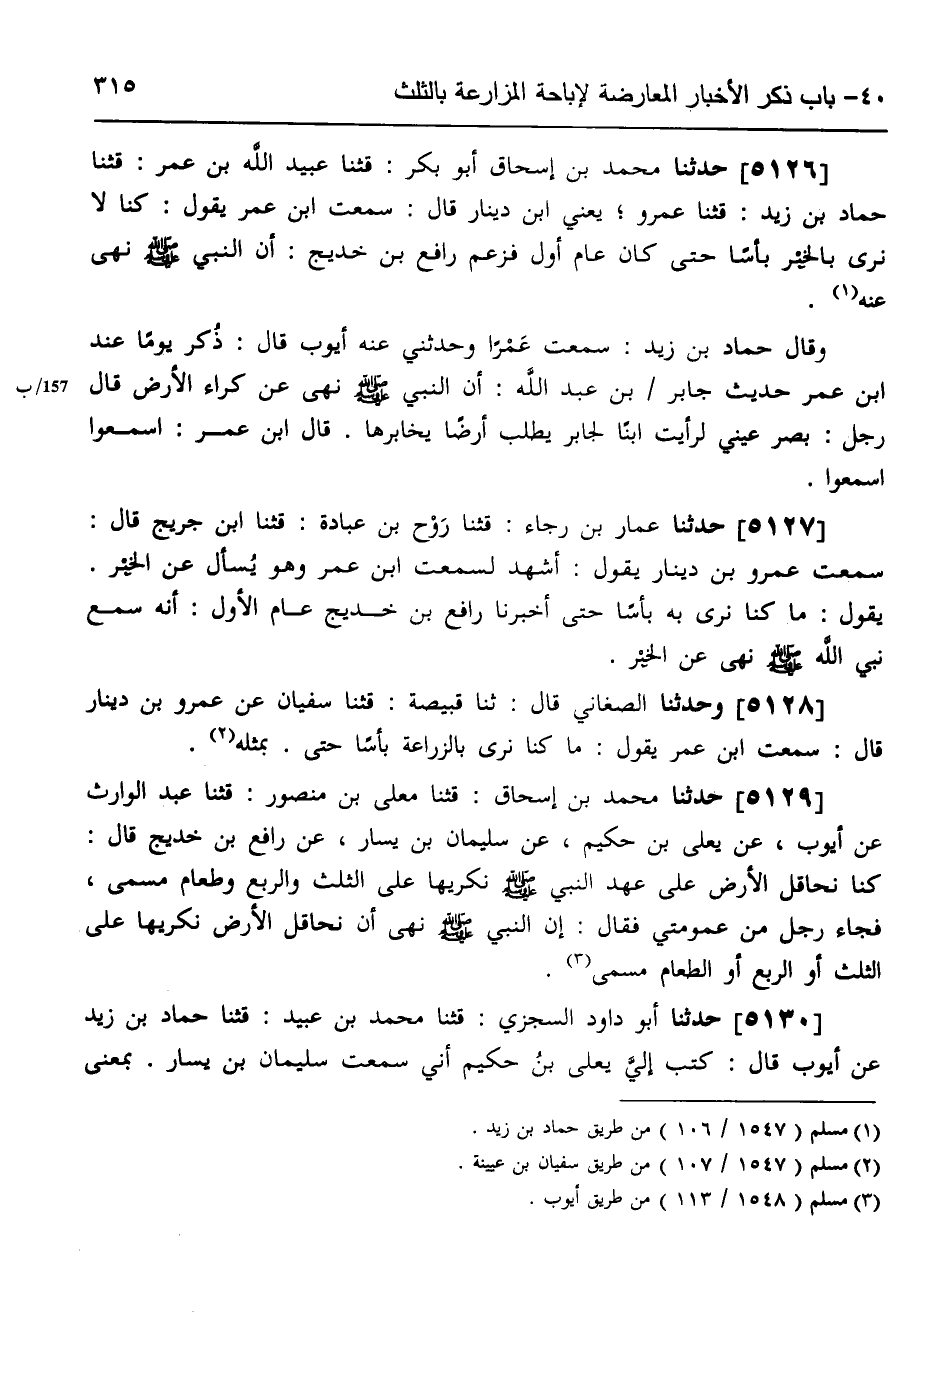 ٤٠- باب ذكر الأخبار المعارضة لإباحة المزارعة بالثلث ٣١٥
[٥١٢٦] حدثنا محمد بن إسحاق أبو بكر : قثنا عبيد اللَّه بن عمر : قثنا
حماد بن زيد : قثنا عمرو ؛ يعني ابن دينار قال : سمعت ابن عمر يقول : كنا لا
نرى بالخِبْر بأسًا حتى كان عام أول فزعم رافع بن خديج : أن النبي ﷺ نهى
عنه(١) .
وقال حماد بن زيد : سمعت عَمْرًا وحدثني عنه أيوب قال : ذُكر يومًا عند
ابن عمر حديث جابر / بن عبد اللَّه : أن النبي ﷺ نهى عن كراء الأرض قال 157/ب
رجل : بصر عيني لرأيت ابنًا لجابر يطلب أرضًا يخابرها . قال ابن عمر : اسمعوا
اسمعوا .
[٥١٢٧] حدثنا عمار بن رجاء : قثنا رَوْح بن عبادة : قثنا ابن جريج قال :
سمعت عمرو بن دينار يقول : أشهد لسمعت ابن عمر وهو يُسأل عن الخِبْر .
يقول : ما كنا نرى به بأسًا حتى أخبرنا رافع بن خديج عام الأول : أنه سمع
نبي اللَّه ﷺ نهى عن الخِبْر .
[٥١٢٨] وحدثنا الصغاني قال : ثنا قبيصة : قثنا سفيان عن عمرو بن دينار
قال : سمعت ابن عمر يقول : ما كنا نرى بالزراعة بأسًا حتى . بمثله(٢) .
[٥١٢٩] حدثنا محمد بن إسحاق : قثنا معلى بن منصور : قثنا عبد الوارث
عن أيوب ، عن يعلى بن حكيم ، عن سليمان بن يسار ، عن رافع بن خديج قال :
كنا نحاقل الأرض على عهد النبي ﷺ نكريها على الثلث والربع وطعام مسمى ،
فجاء رجل من عمومتي فقال : إن النبي ﷺ نهى أن نحاقل الأرض نكريها على
الثلث أو الربع أو الطعام مسمى(٣) .
[٥١٣٠] حدثنا أبو داود السجزي : قثنا محمد بن عبيد : قثنا حماد بن زيد
عن أيوب قال : كتب إليَّ يعلى بنُ حكيم أني سمعت سليمان بن يسار . بمعنى
(١) مسلم ( ١٥٤٧ / ١٠٦ ) من طريق حماد بن زيد .
(٢) مسلم ( ١٥٤٧ / ١٠٧ ) من طريق سفيان بن عيينة .
(٣) مسلم ( ١٥٤٨ / ١١٣ ) من طريق أيوب .